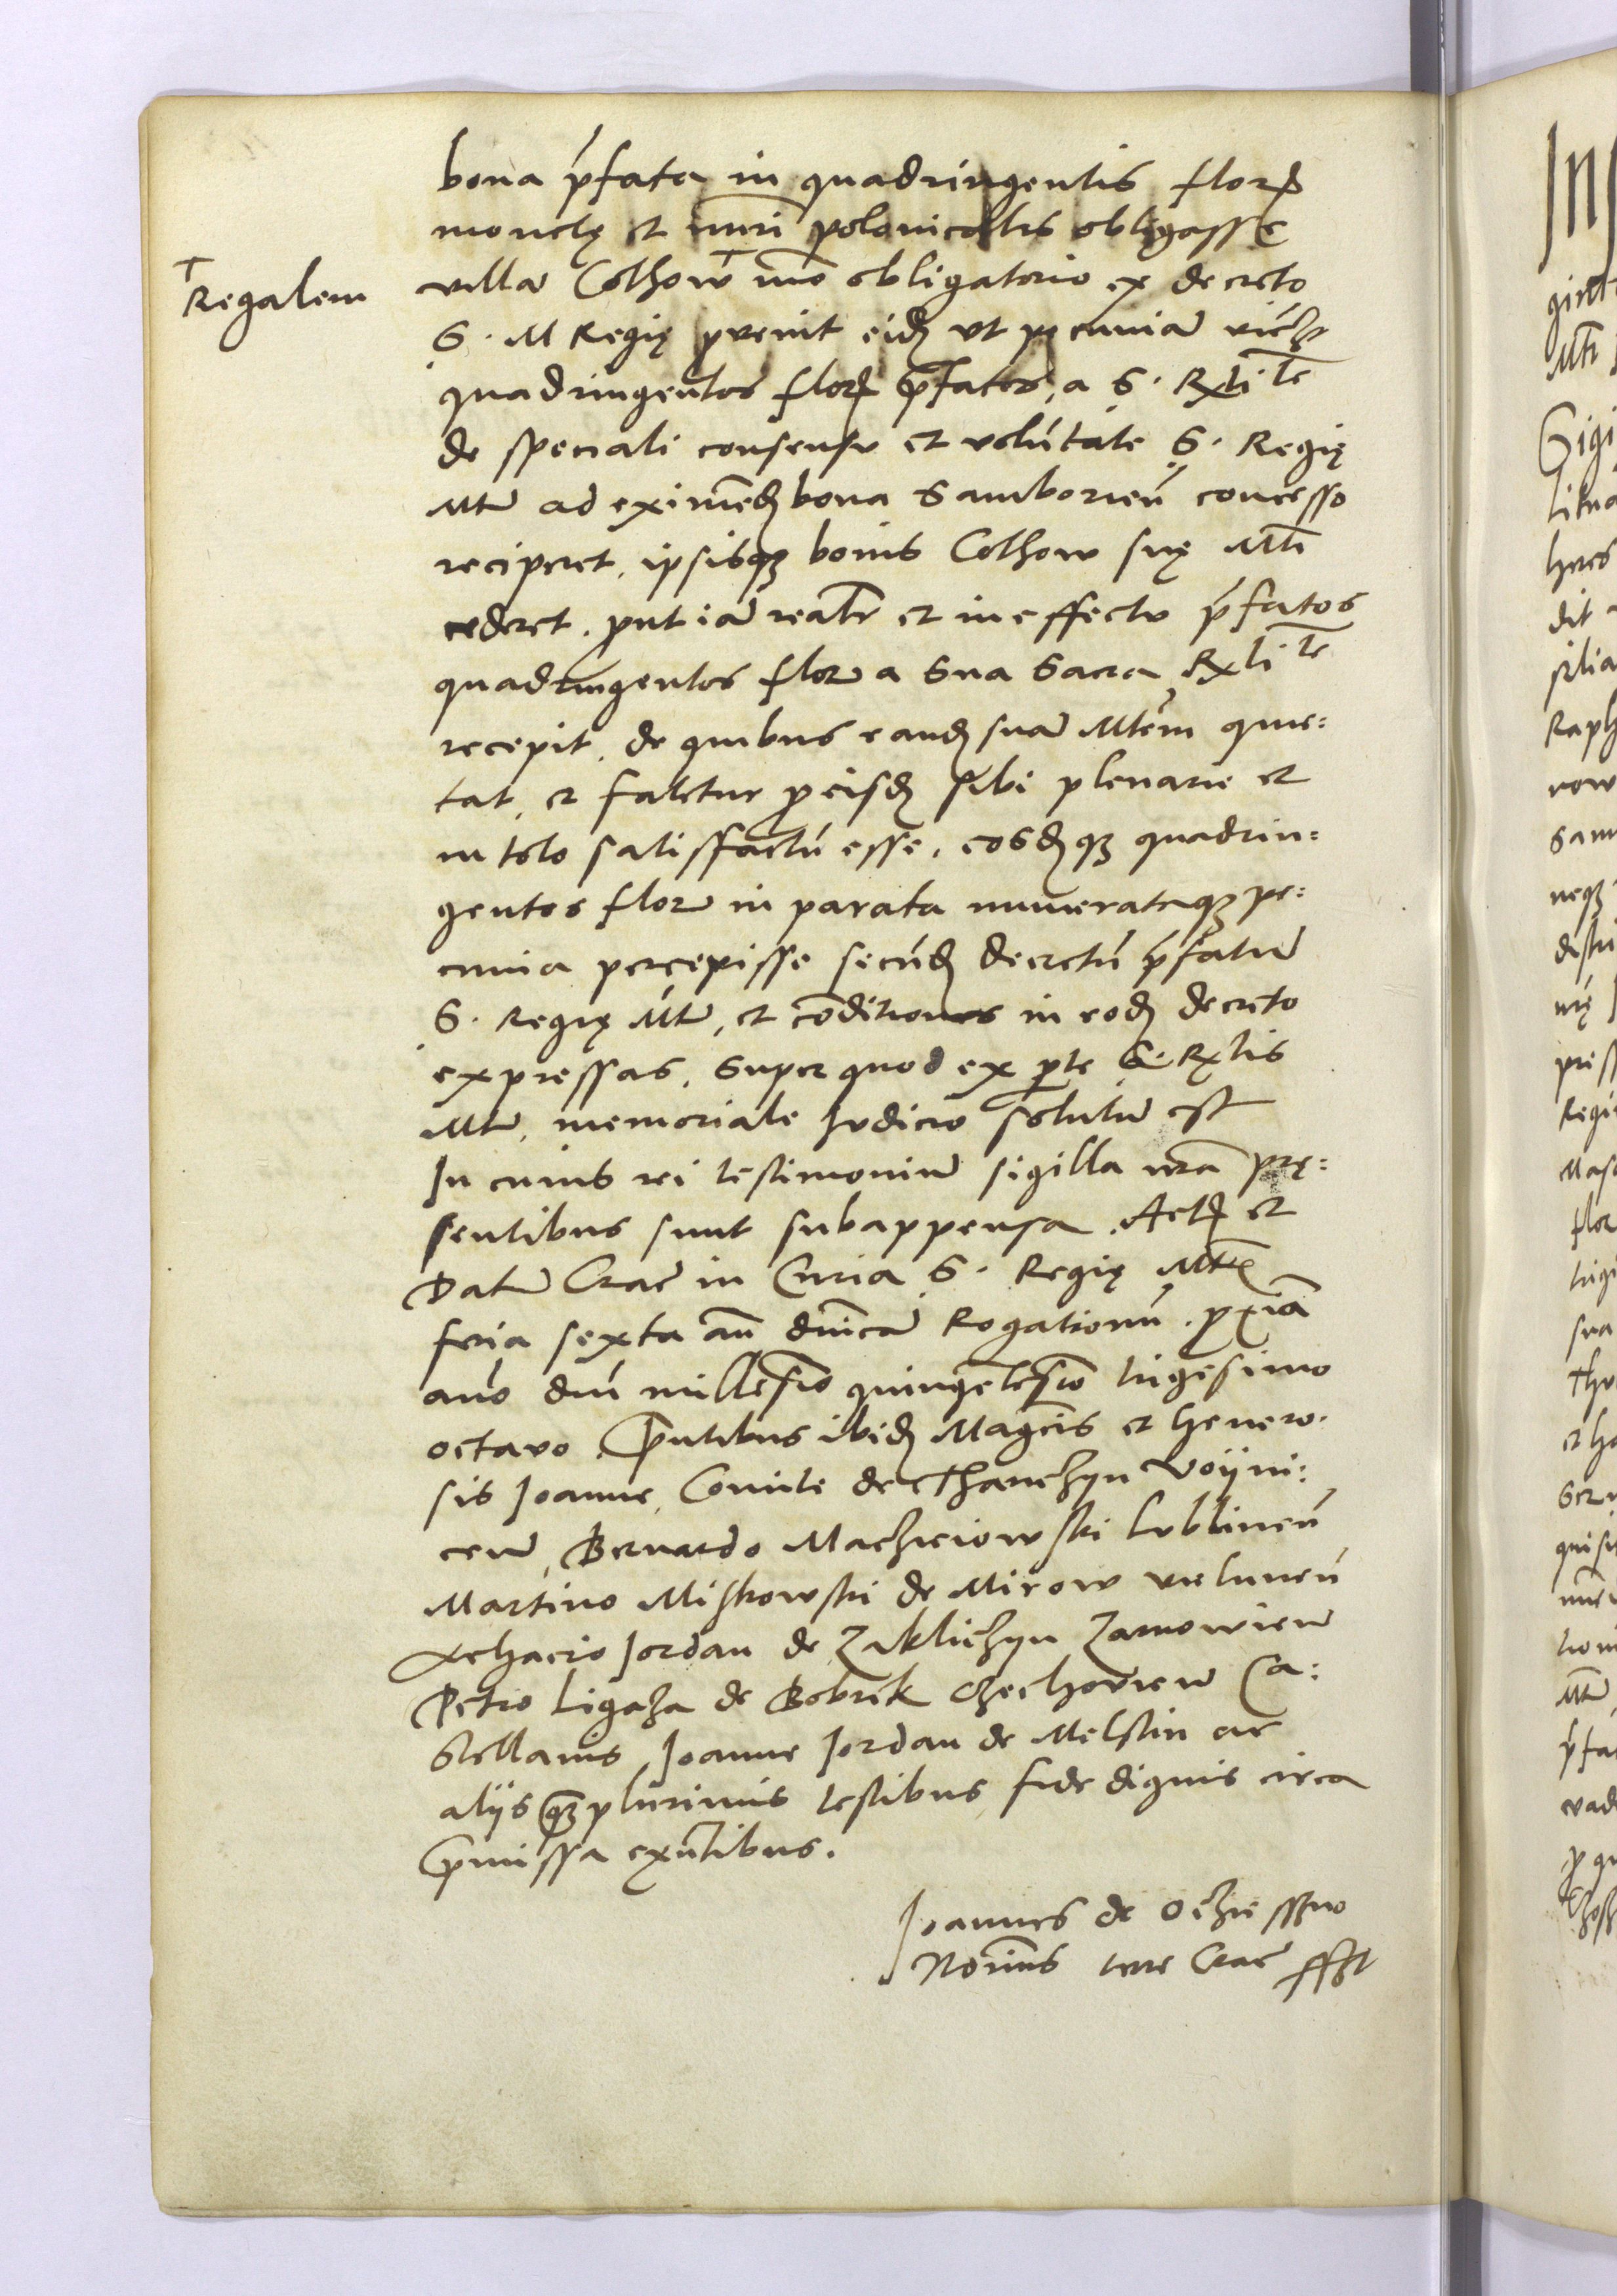 bona p̄fata in quadringentis flor̄
monetę et nūri polonicalis obligasse
† Regalem
villā Cothow † mō obligatorio ex decreto
S. M Regię ꝓvenit eidꝫ ut pecuniā vicꝫ
quadringentos flor̄ p̄fatos, a S. Rxli te
de speciali consensu et volūtate S. Regię
Mtis ad eximēdꝫ bona Samborien̄ concesso
reciperet, ipsisqꝫ bonis Cothow suę Mti
cederet, ꝓut iā realr̄ et in effectu p̄fatos
quadringentos flor a Sua Sacra Rxli te
recepit, de quibus eandꝫ suā Mtēm quie:
tat, et fatetur ꝓ eisdꝫ sibi plenarie et
in toto satisffactū esse, eosdꝫqꝫ quadrin:
gentos flor in parata numerataqꝫ pe:
cunia percepisse secūdꝫ decretū p̄fatum
S. Regię Mtis, et cōditiones in eodꝫ decreto
expressas. Super quod ex ꝑte S. Rxlis
Mtis, memoriale Judicio solutum est
In cuius rei testimonium sigilla nrā prę:
sentibus sunt subappensa. Act̄ et
Datum Crac̄ in Curia S. Regię Mtis
feria sexta an̄ dnīcā Rogationū ꝓxīā
anō dnī millesīo quingētesīo trigesimo
octavo. Pn̄tibus ibidꝫ Magcīs et Genero:
sis Joanne Comite de Thanchyn Voijni:
cen̄, Bernardo Machieiowski Lublinen̄
Martino Mishowski de Mirow vielunen̄
Achacio Jordan de Zakliczyn Zarnowien̄
Petro Ligaza de Bobrek Czechovien̄ Ca:
stellanis, Joanne Jordan de Melstin ac
alijs qꝫ plurimis testibus fide dignis circa
p̄missa exn̄tibus.
Joannes de Ocziessno
Notriūs terre Crac̄ sst